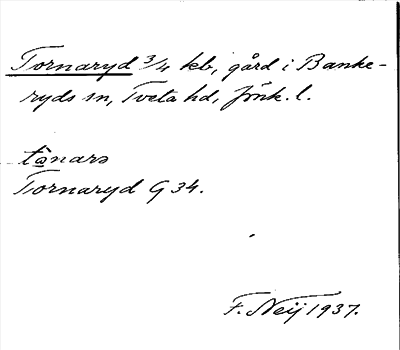 Tornaryd 3/4 kb, gård i Banke-
ryds sn, Tveta hd, Jönk. l.
tånarə
Tornaryd G 34.
F. Neij 1937.